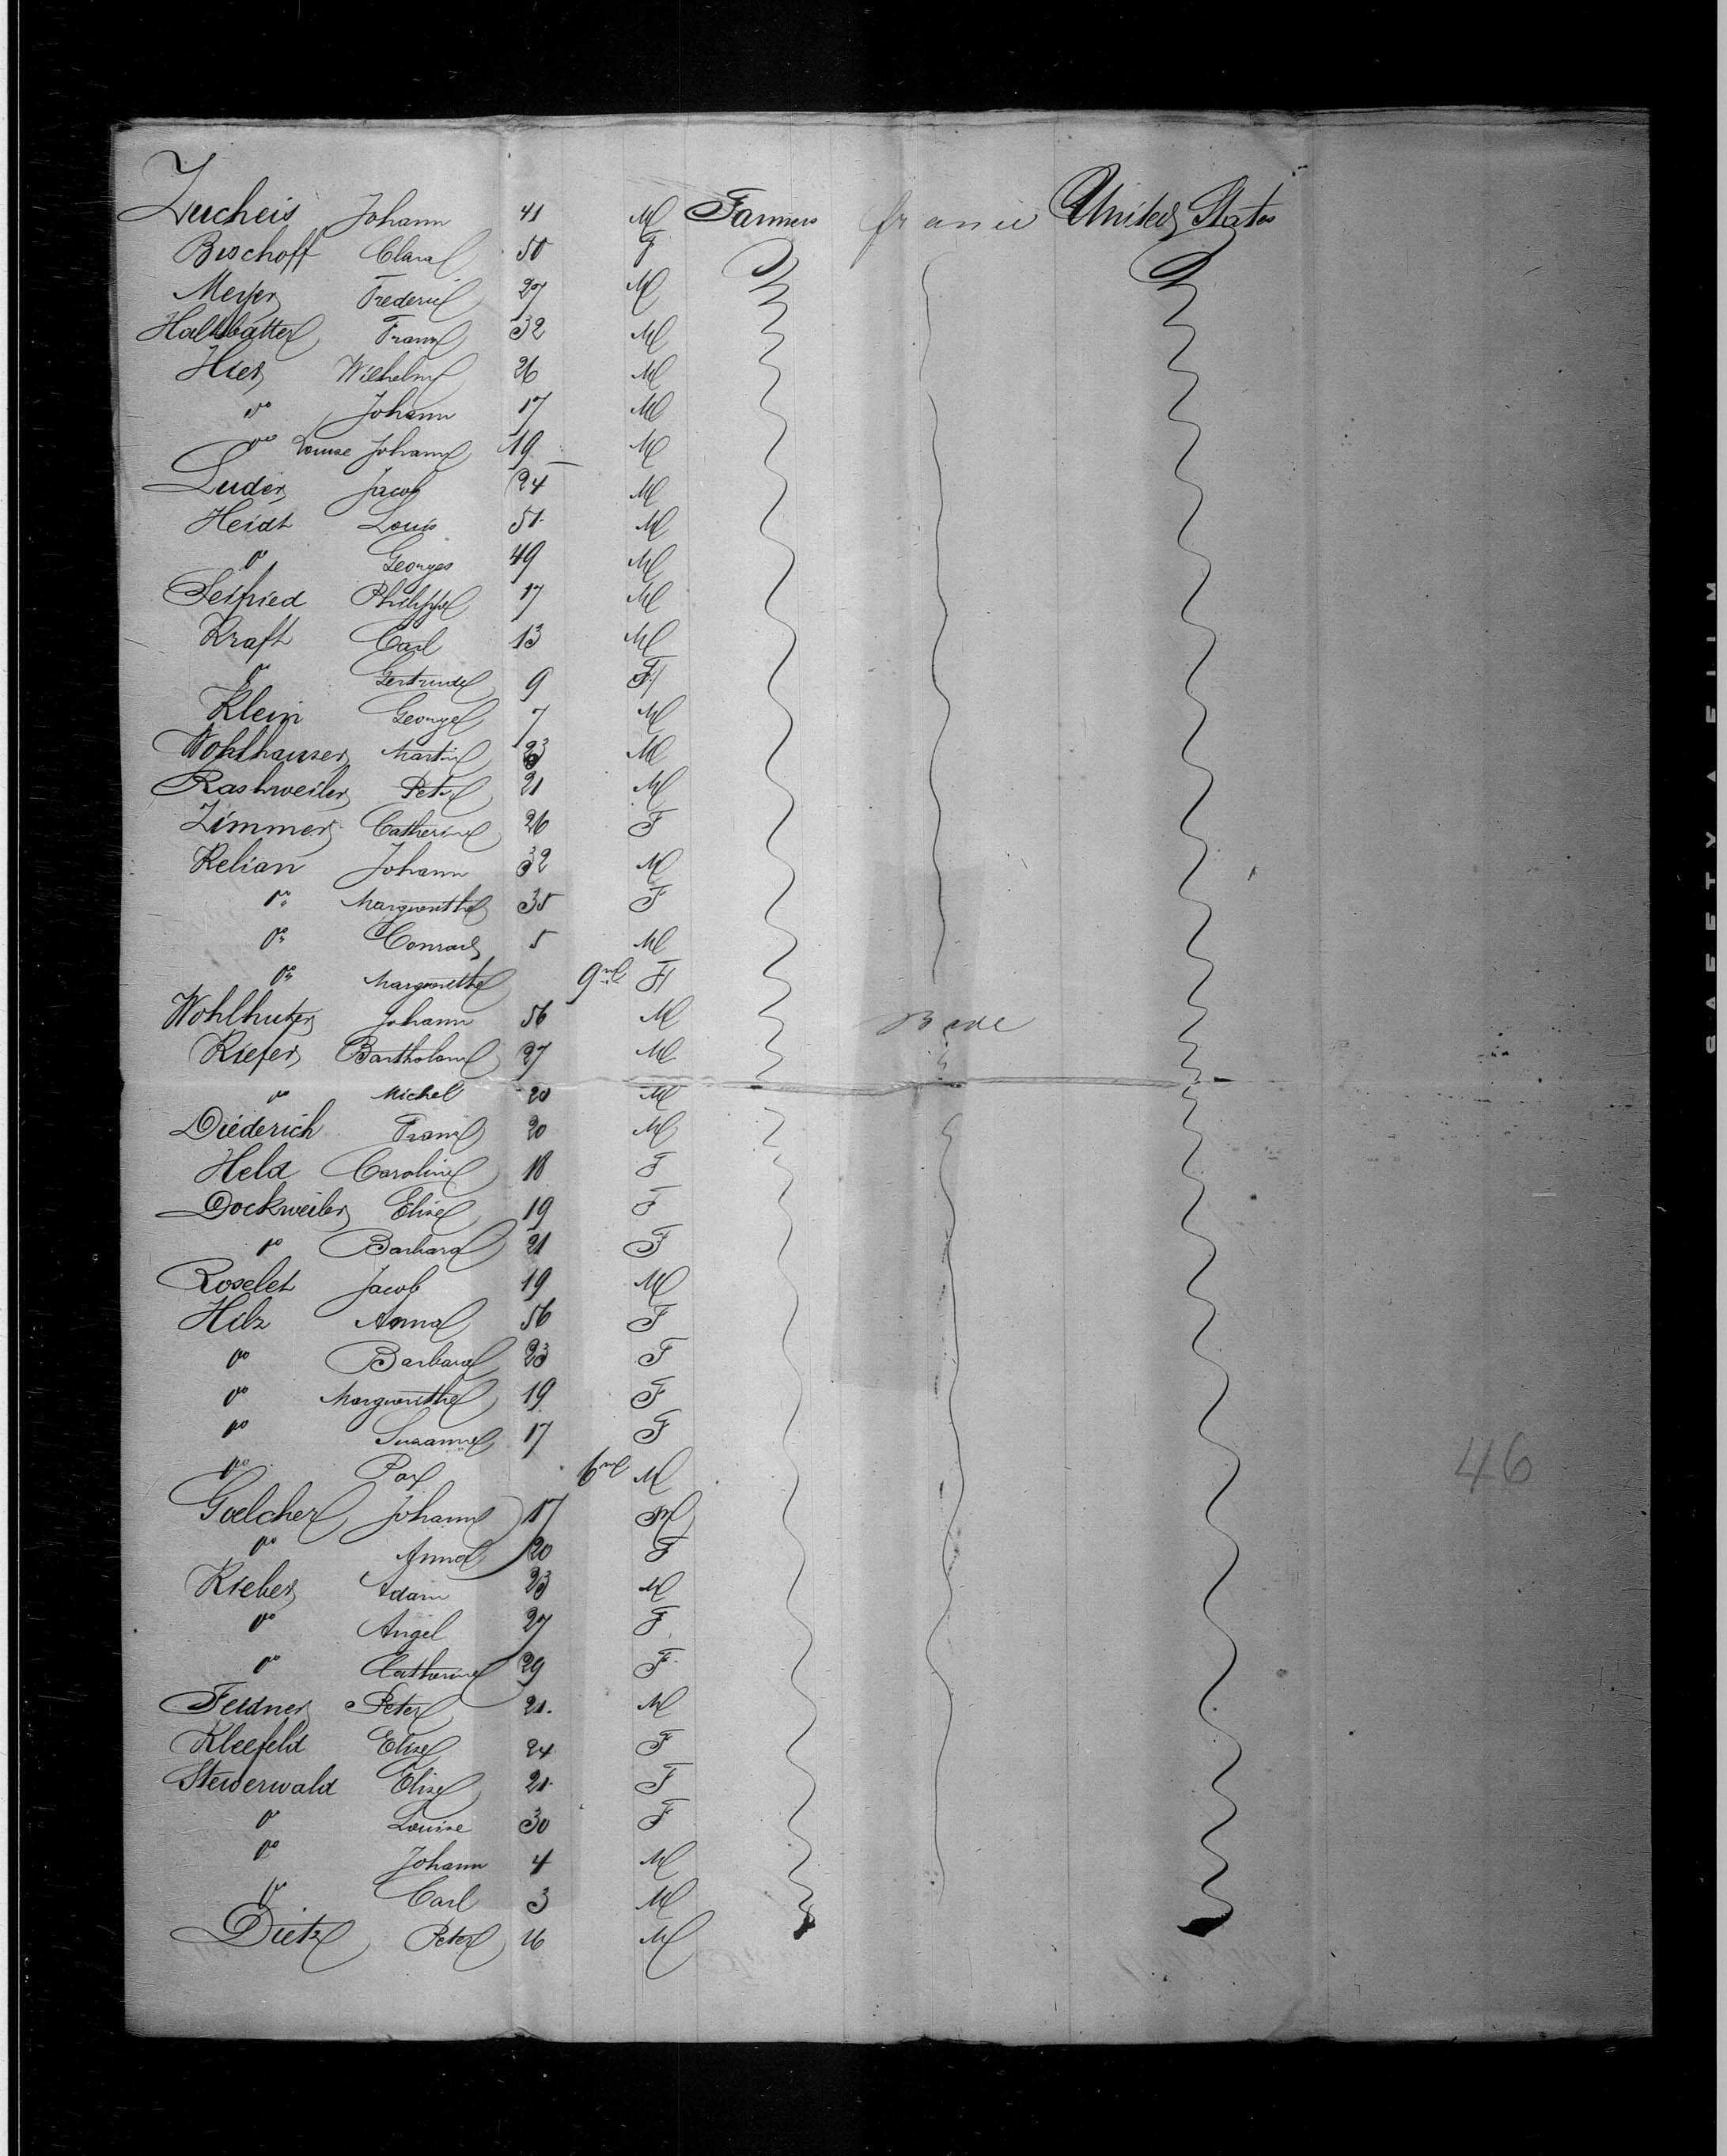 Zucheis Johann 41 M Farmers france United States
Bischoff Clara 50 F
Meyer Frederic 27 M
Franz 32 M
Hier Wilhelm 26 M
do Johann 17 M
do Louise Johann 19 M
Luder Jacob 24 M
Heidt Louis 51 M
do Georges 49 M
Seifried Philippe 17 M
Kraft Carl 13 M
do Gertrude 9 F
Klein George 7 M
Wohlhauser Martin 23 M
Rashweiler Peter 21 M
Zimmer Catherine 26 F
Kelian Johann 32 M
do Marguerithe 35 F
do Conrad 5 M
do Marguerithe 9 m F
Wohlhuter Johann 56 M Bade
Kiefer Bartholome 27 M
do Michel 20 M
Diederich Franz 20 M
Held Caroline 18 F
Dockweiler Elise 19 F
do Barbara 21 F
Roselet Jacob 19 M
Hilz Anna 56 F
do Barbara 23 F
do Marguerithe 19 F
do Suzanne 17 F
do 6 m M
Goelcher Johann 17 M
do Anna 20 F
Kieber Adam 23 M
do Angel 27 F
do Catherine 29 F
Feidner Peter 21. M
Kleefeld Elise 24 F
Steuerwald Elise 21. F
do Louise 30 F
do Johann 4 M
do Carl 3 M
Dietz Peter 16 M
46
SAFETY A FILM